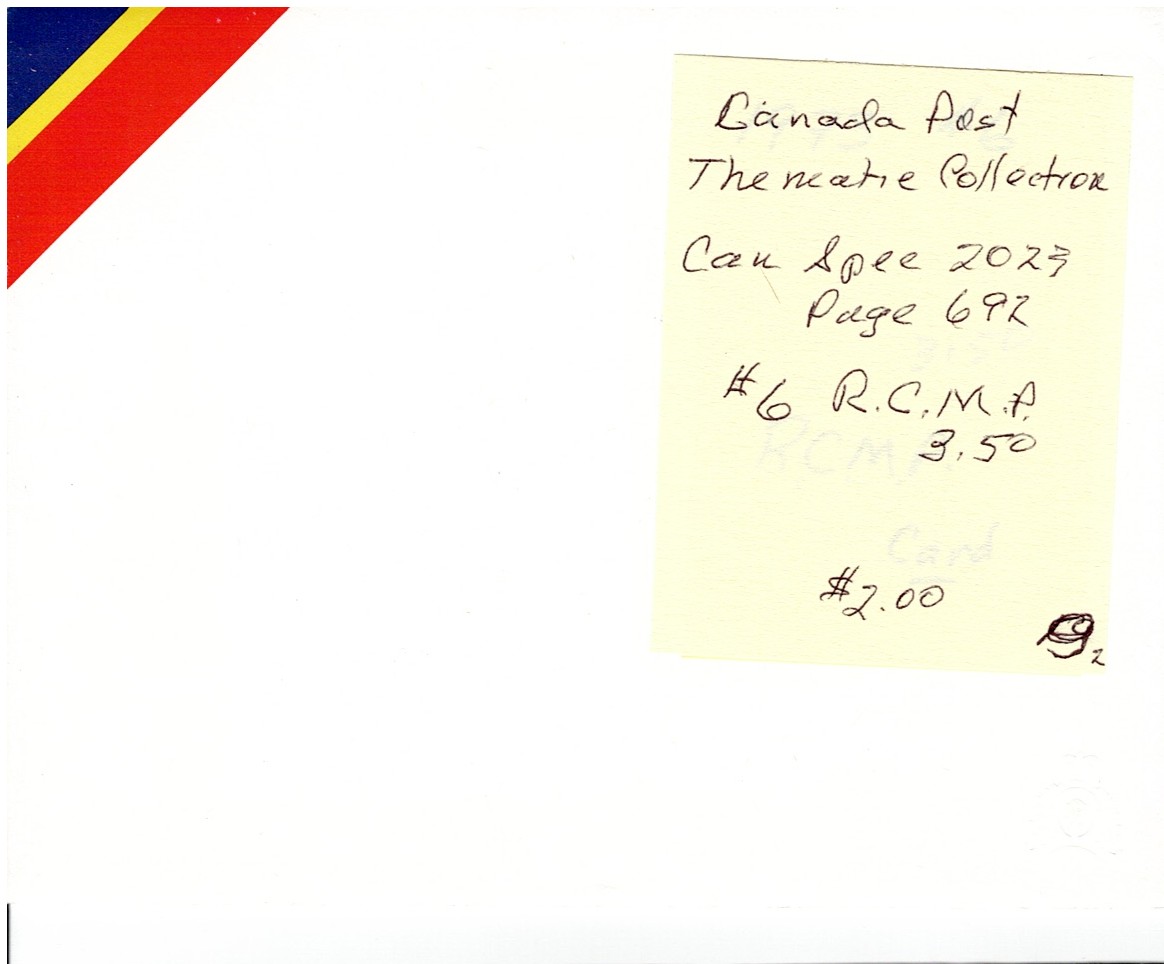 Canada Post
Thematic Collection
Can Spec 2023
Page 692
#6 R.C.M.P.
3.50
RCMP
Card
$2.00
2